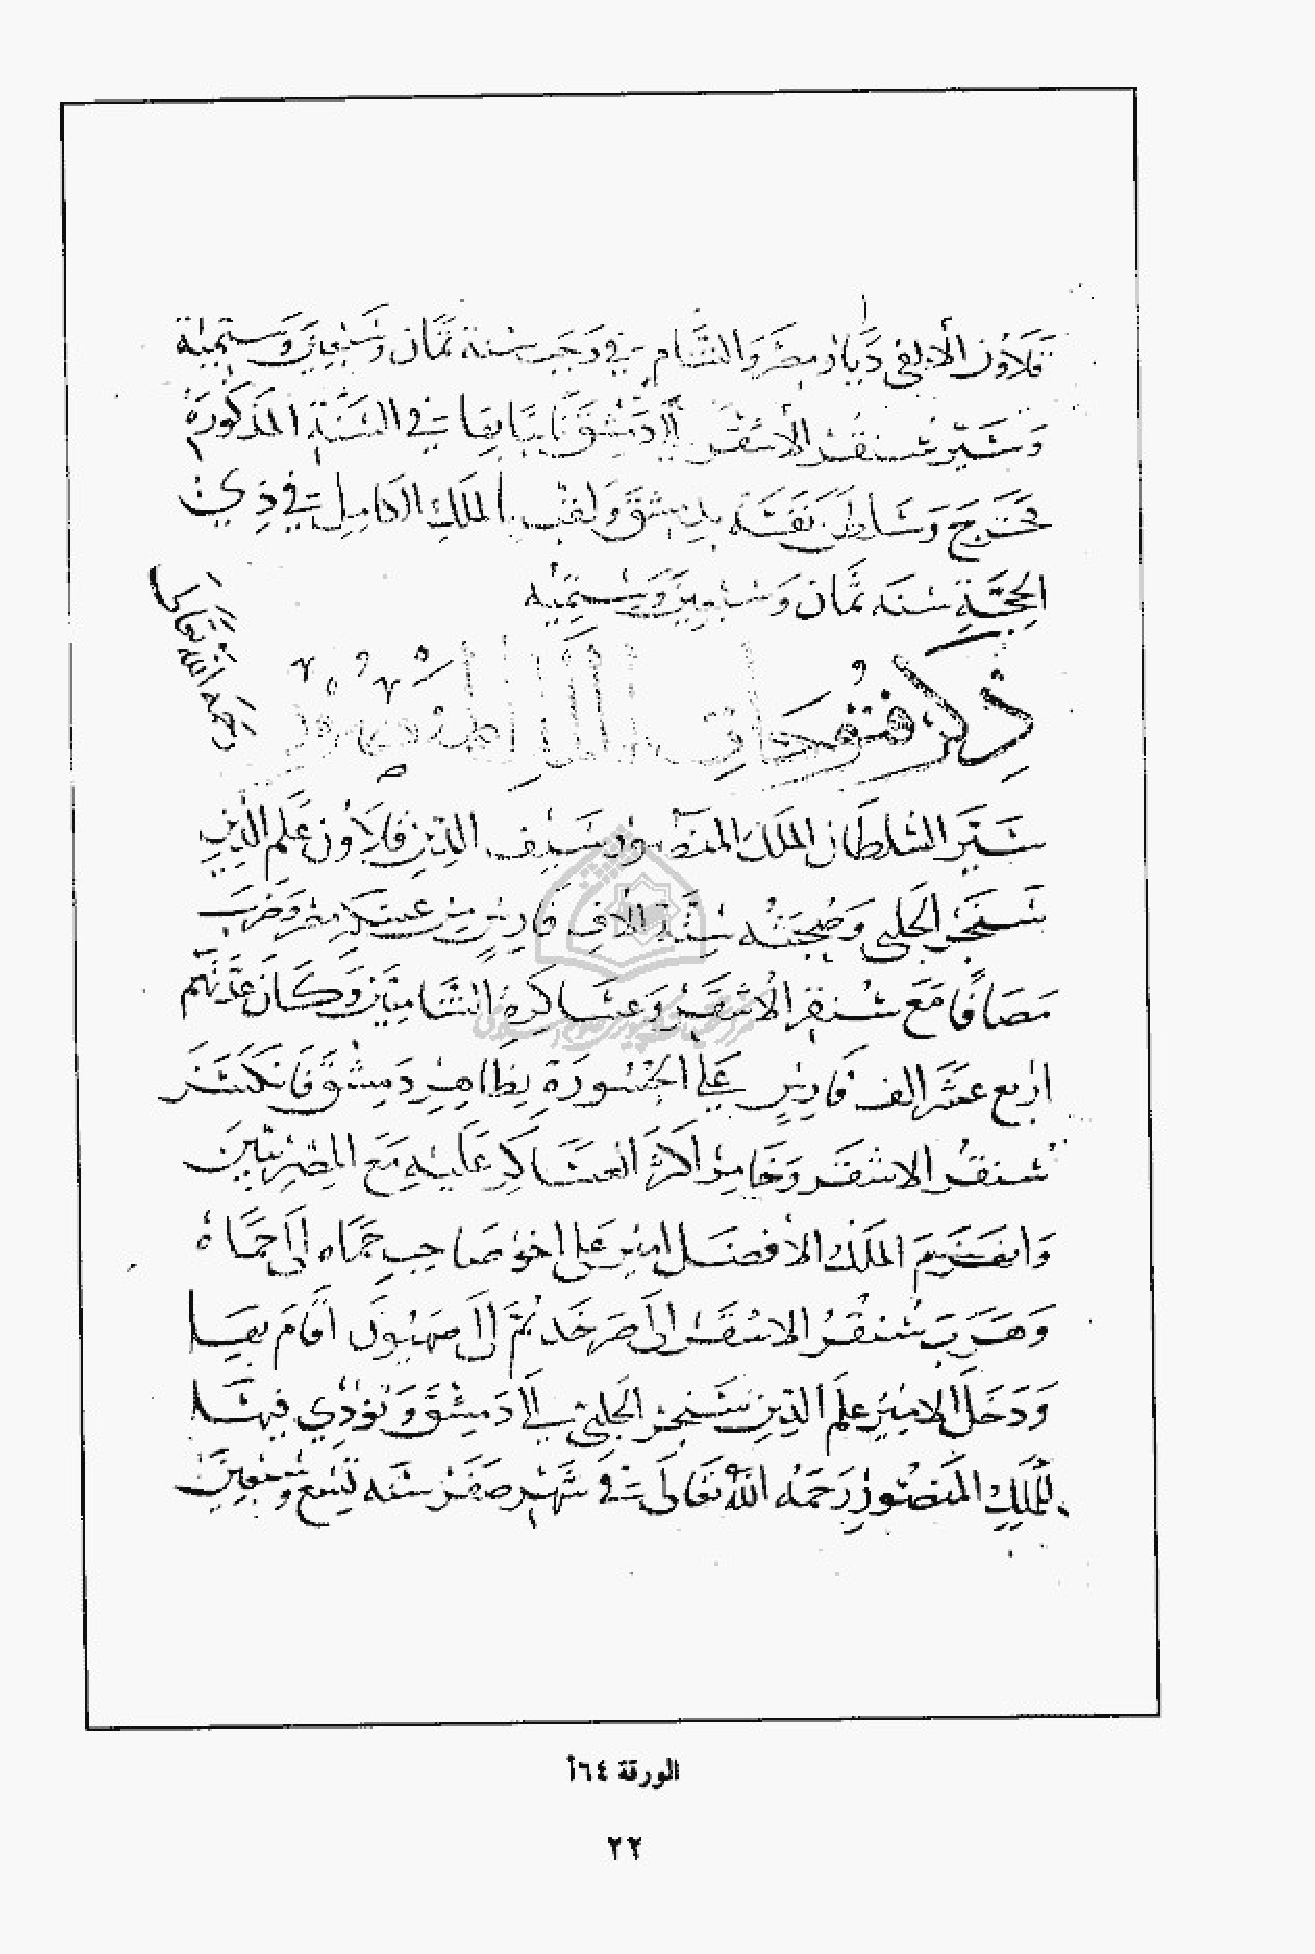 قلاوون الألفى ديار مصر والشام في رجب سنة ثمان وسبعين وستمية
وسيّر سنقر الأشقر إلى دمشق نايبًا بها في السنة المذكورة
فخرج وسلطن نفسه بدمشق ولقب بالملك الكامل في ذي
الحجة سنه ثمان وسبعين وستميه
ذكر فتوحات الملك المنصور
رحمه الله تعالى
سيّر السلطان الملك المنصور سيف الدين قلاوون علم الدين
سنجر الحلبي وصحبته ستة الاف فارس من عسكر مصر وضرب
مصافًا مع سنقر الاشقر وعساكره الشاميين وكان عدتهم
اربع عشر الف فارس على الجسورة بظاهر دمشق فانكسر
سنقر الاشقر وخامر اكثر العساكر عليه مع المصريين
وانهزم الملك الأفضل امير على اخو صاحب حماه الى حماة
وهرب سنقر الاشقر الى صرخد ثم الى صهيون اقام بها
ودخل الامير علم الدين سنجر الحلبي الى دمشق ونودي فيها
للملك المنصور رحمه الله تعالى في شهر صفر سنه تسع وسبعين
الورقة ٦٤أ
٢٢